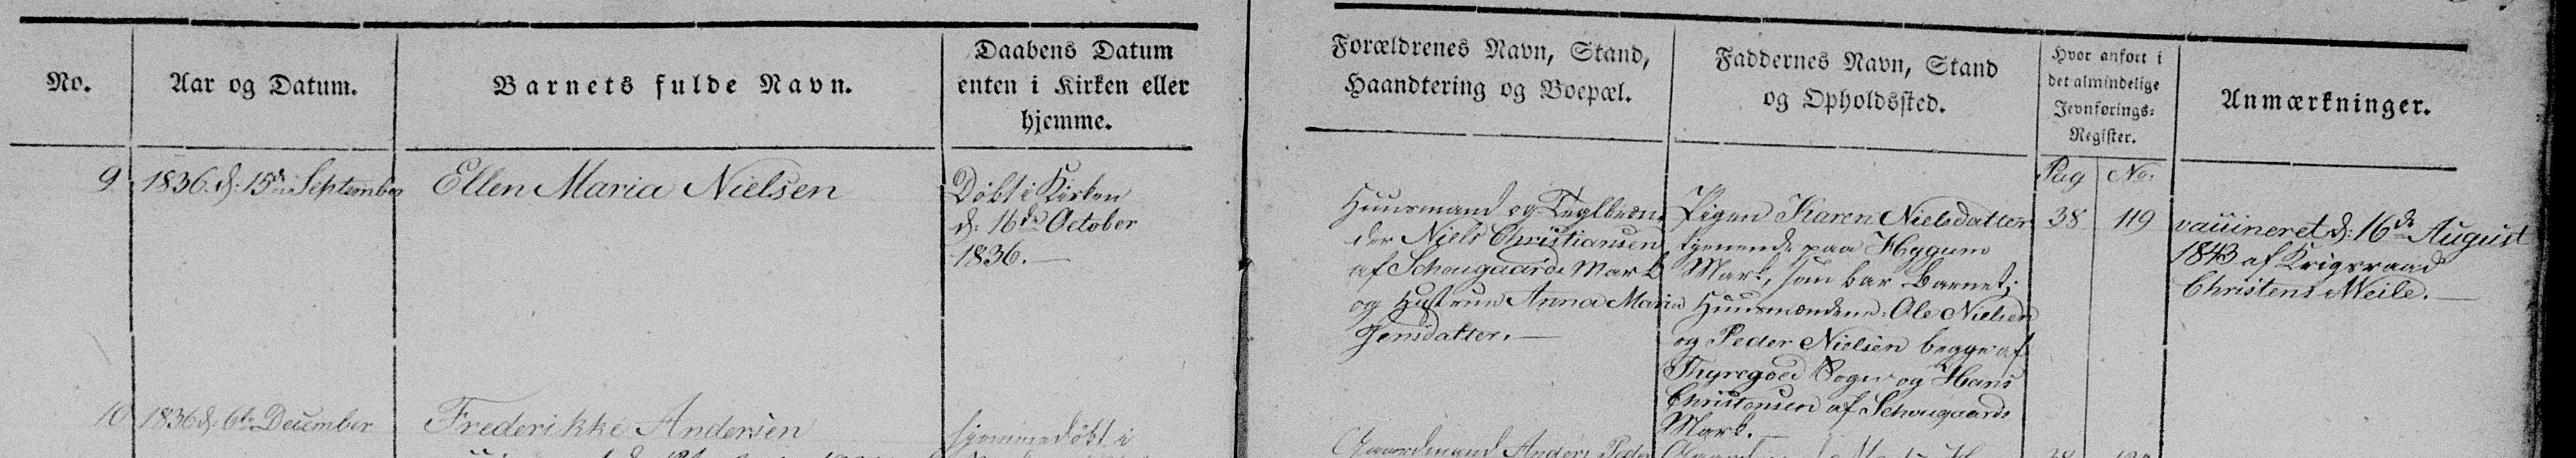 No.
Aar og Datum.
Barnets fulde Navn.
Daabens Datum
enten i Kirken eller
hjemme.
Forældrenes Navn, Stand,
Haandtering og Boepæl.
Faddernes Navn, Stand
og Opholdssted.
Hvor anført i
det almindelige
Jevnførings-
Register.
Anmærkninger.
Pag No.
9
1836. d: 15de September
Ellen Maria Nielsen
Døbt i Kirken
d: 16de October
1836.
Huusmand og Teglbræn-
der Niels Christiansen
af Schougaards Mark
og Hustrue Anna Maria
Jensdatter.
Pigen Karen Nielsdatter
tjenende paa Hygum
Mark, som bar Barnet;
Huusmændene: Ole Nielsen
og Peder Nielsen begge af
Thyregoed Sogn og Hans
Christensen af Schougaards
Mark.
38
119
vaccineret d: 16de August
1843 af Krigsraad
Christens Meile.
10
1836 d: 6te December
Frederikke Andersen
hjemmedøbt i
Gaardmand Anders Peder